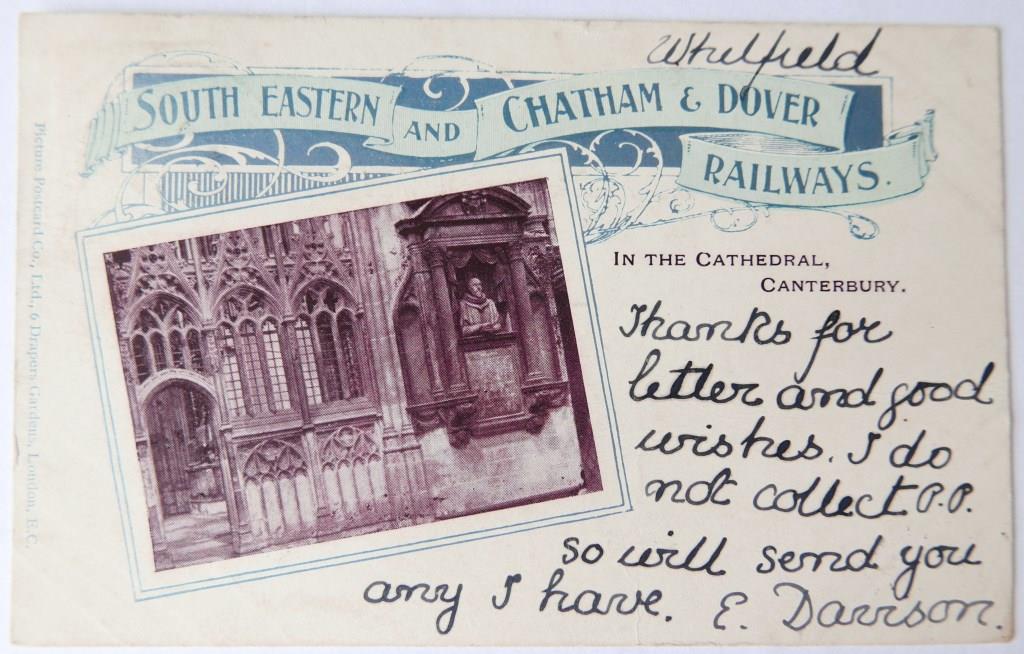 Whilfield
SOUTH EASTERN AND CHATHAM & DOVER
RAILWAYS.
IN THE CATHEDRAL,
CANTERBURY.
Thanks for
letter and good
wishes. I do
not collect P.P.
so will send you
any I have. E. Davison.
Picture Postcard Co., Ltd., 6 Drapers Gardens, London, E.C.